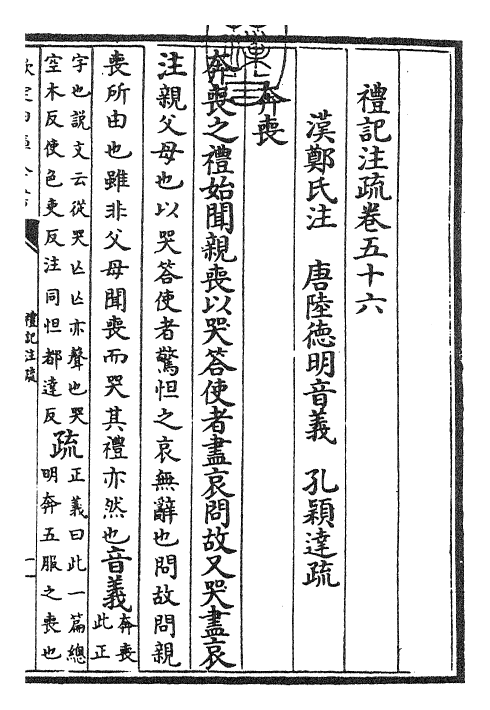 禮記注疏卷五十六
漢鄭氏注　唐陸德明音義　孔穎達疏
奔喪
奔喪之禮始聞親喪以哭答使者盡哀問故又哭盡哀
注親父母也以哭答使者驚怛之哀無辭也問故問親
喪所由也雖非父母聞喪而哭其禮亦然也音義奔喪此正
字也説文云從哭亡亡亦聲也哭
空木反使色吏反注同怛都達反
疏正義曰此一篇總
明奔五服之喪也
禮記注疏
一